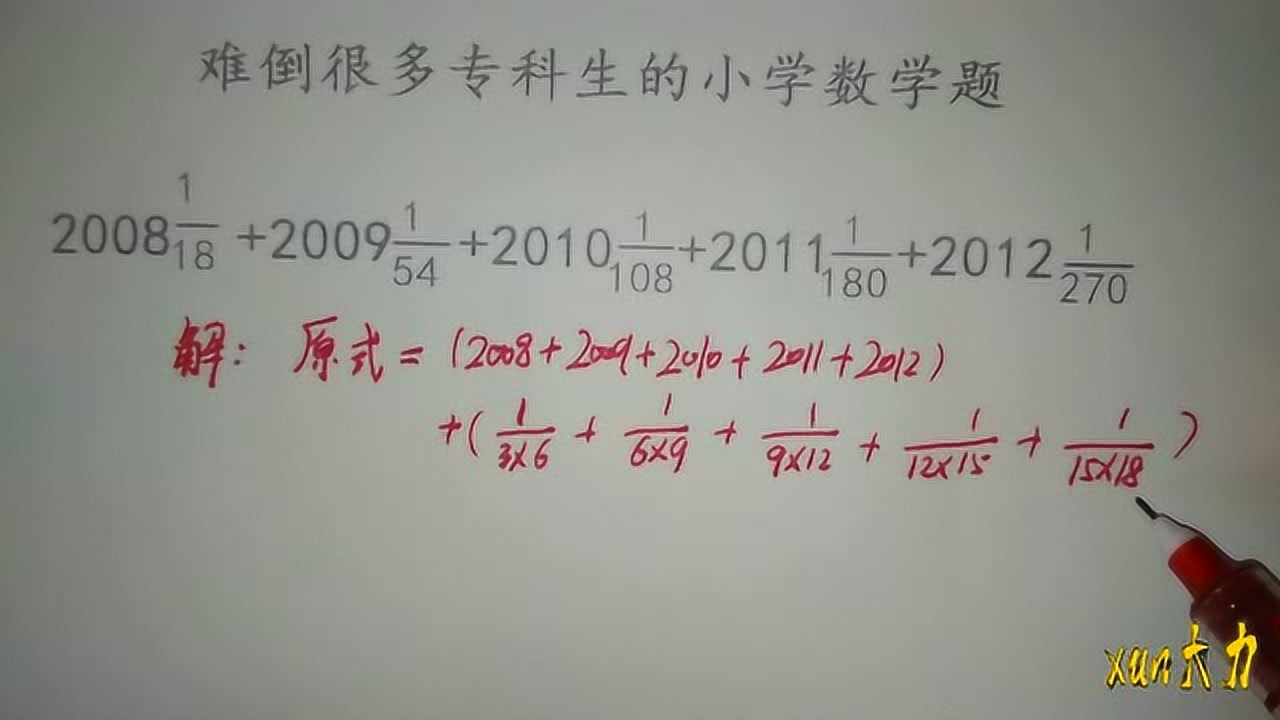 难倒很多专科生的小学数学题
2008 1/18 +2009 1/54 +2010 1/108 +2011 1/180 +2012 1/270
解: 原式 = (2008 + 2009 + 2010 + 2011 + 2012)
+ ( 1/3×6 + 1/6×9 + 1/9×12 + 1/12×15 + 1/15×18 )
xun大力